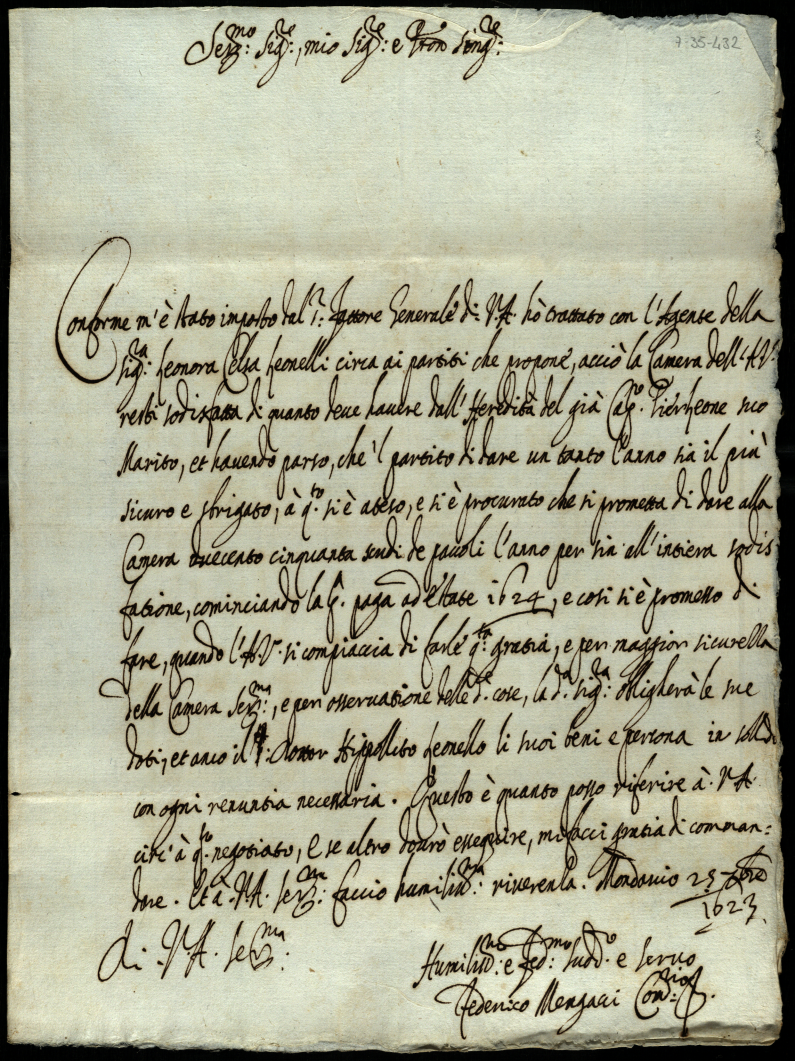 Ser.mo Sig.re, mio Sig.re e Pron Sing.re
7-35-432
Conforme m'è stato imposto dal S.r Fattore Generale di V.A. hò trattato con l'Agente della
Sig.ra Leonora Celsa Leonelli circa ai partiti che propone, acciò la Camera dell'A.V.
resti sodisfatta di quanto deve havere dall'Heredità del già Cap.no Pierleone suo
Marito, et havendo parso, che 'l partito di dare un tanto l'anno sia il più
sicuro e sbrigato, à q.to si è ateso, e si è procurato che si prometta di dare alla
Camera duecento cinquanta scudi de pauoli l'anno per sin all'intiera sodis
fatione, cominciando la p.a paga ad estate 1624, e così si è promesso di
fare, quando l'A.V. si compiaccia di farle q.ta gratia, e per maggior sicurezza
della Camera Ser.ma, e per osservatione delle d.e cose, la d.a Sig.ra obligherà le sue
doti, et anco il S.r Dottor Hippolito Leonello li suoi beni e persona in solido
con ogni renuntia necessaria. Questo è quanto posso riferire à V.A.
circ'à q.to negotiato, e se altro dourò esseguire, mi facci gratia di comman=
dare. Et à V.A. Ser.ma faccio humiliss.ma riverenza. Mondavio 25
1623.
di V.A. Ser.ma
Humiliss.mo e Fed.mo sudd.o e servo
Federico Mengacci Com.rio